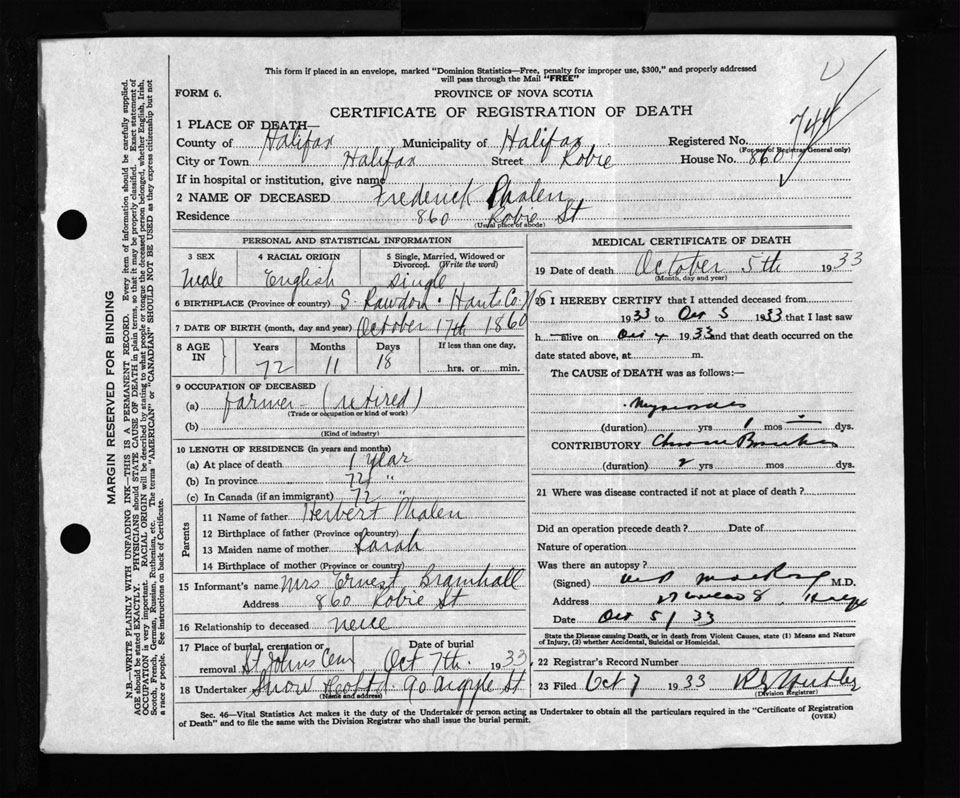 This form if placed in an envelope, marked "Dominion Statistics—Free, penalty for improper use, $300," and properly addressed
will pass through the Mail "FREE"
FORM 6.
PROVINCE OF NOVA SCOTIA
CERTIFICATE OF REGISTRATION OF DEATH
1 PLACE OF DEATH—
County of Halifax Municipality of Halifax Registered No. 744
(For use of Registrar General only)
City or Town Halifax Street Robie House No. 860
If in hospital or institution, give name
2 NAME OF DECEASED Frederick Phalen
Residence 860 Robie St
(Usual place of abode)
PERSONAL AND STATISTICAL INFORMATION
3 SEX 4 RACIAL ORIGIN 5 Single, Married, Widowed or
Divorced. (Write the word)
Male English Single
6 BIRTHPLACE (Province or country) S. Rawdon. Hants Co. N.S
7 DATE OF BIRTH (month, day and year) October 17th 1860
8 AGE IN Years Months Days If less than one day,
72 11 18 hrs. or min.
9 OCCUPATION OF DECEASED
(a) farmer - (retired)
(Trade or occupation or kind of work)
(b)
(Kind of industry)
10 LENGTH OF RESIDENCE (in years and months)
(a) At place of death 1 Year
(b) In province 72 "
(c) In Canada (if an immigrant) 72 "
Parents
11 Name of father Herbert Phalen
12 Birthplace of father (Province or country)
13 Maiden name of mother Sarah
14 Birthplace of mother (Province or country)
15 Informant's name Mrs Ernest Bramhall
Address 860 Robie St
16 Relationship to deceased neice
17 Place of burial, cremation or Date of burial
removal St Johns Cem Oct 7th 1933
18 Undertaker Snow & Co Ltd. 90 Argyle St
(Name and address)
MEDICAL CERTIFICATE OF DEATH
19 Date of death October 5th 1933
(Month, day and year)
20 I HEREBY CERTIFY that I attended deceased from
1933 to Oct 5 1933 that I last saw
h alive on Oct 4 1933 and that death occurred on the
date stated above, at m.
The CAUSE of DEATH was as follows:—
(duration) yrs 1 mos — dys.
CONTRIBUTORY Chronic Bronchitis
(duration) 2 yrs mos dys.
21 Where was disease contracted if not at place of death?
Did an operation precede death? Date of
Nature of operation
Was there an autopsy?
(Signed) M.D.
Address
Date Oct 5/33
State the Disease causing Death, or in death from Violent Causes, state (1) Means and Nature
of Injury, (2) whether Accidental, Suicidal or Homicidal.
22 Registrar's Record Number
23 Filed Oct 7 1933
(Division Registrar)
Sec. 46—Vital Statistics Act makes it the duty of the Undertaker or person acting as Undertaker to obtain all the particulars required in the "Certificate of Registration
of Death" and to file the same with the Division Registrar who shall issue the burial permit. (OVER)
MARGIN RESERVED FOR BINDING
N.B.—WRITE PLAINLY WITH UNFADING INK—THIS IS A PERMANENT RECORD. Every item of information should be carefully supplied.
AGE should be stated EXACTLY. PHYSICIANS should STATE CAUSE OF DEATH in plain terms, so that it may be properly classified. Exact statement of
OCCUPATION is very important. RACIAL ORIGIN will be described by stating to what people or tongue the deceased person belonged, whether English, Irish,
Scotch, French, German, Russian, Ruthenian, etc. The terms "AMERICAN" or "CANADIAN" SHOULD NOT BE USED as they express citizenship but not
a race or people. See instructions on back of Certificate.